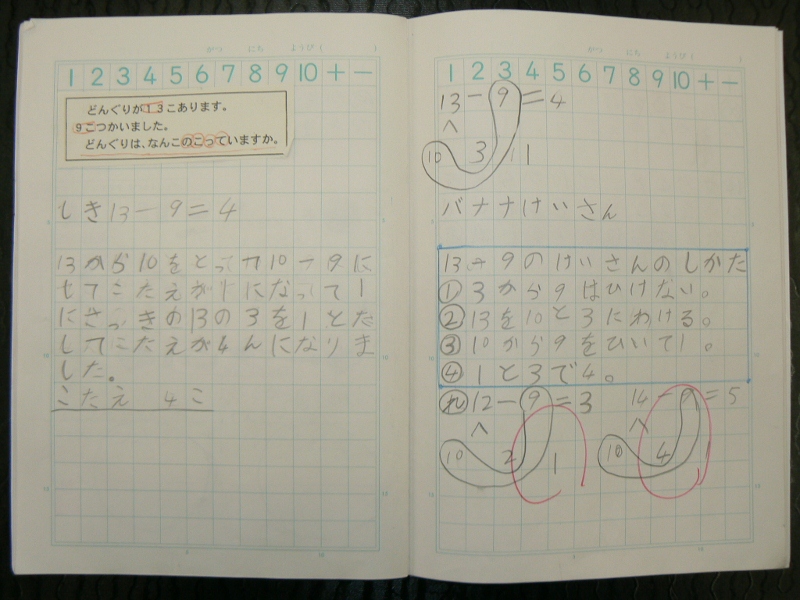 がつ にち ようび ( )
1 2 3 4 5 6 7 8 9 10 + −
どんぐりが13こあります。
9こつかいました。
どんぐりは、なんこのこっていますか。
しき13−9=4
13から10をとって10−9に
してこたえが1になって1
にさっきの13の3を1とた
してこたえが4んになりま
した。
こたえ 4こ
がつ にち ようび ( )
1 2 3 4 5 6 7 8 9 10 + −
13−9=4
10 3 1
バナナけいさん
13−9のけいさんのしかた
①3から9はひけない。
②13を10と3にわける。
③10から9をひいて1。
④1と3で4。
れ 12−9=3 14−9=5
10 2 1 10 4 1